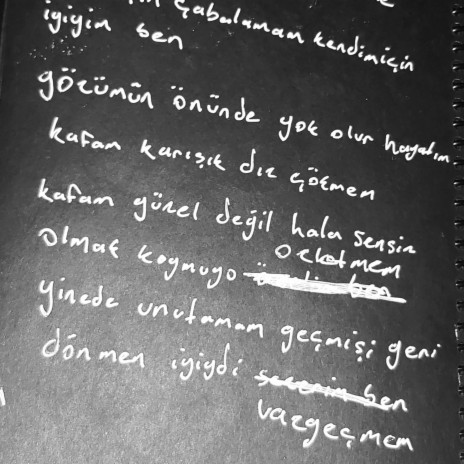 çabalamam kendimiçin
iyiyim ben
gözümün önünde yok olur hayatım
kafam karışık diz çökmen
kafam güzel değil hala sensin
özletmem
olmak koymuyo
yinede unutamam geçmişi geri
dönmen iyiydi
vazgeçmem